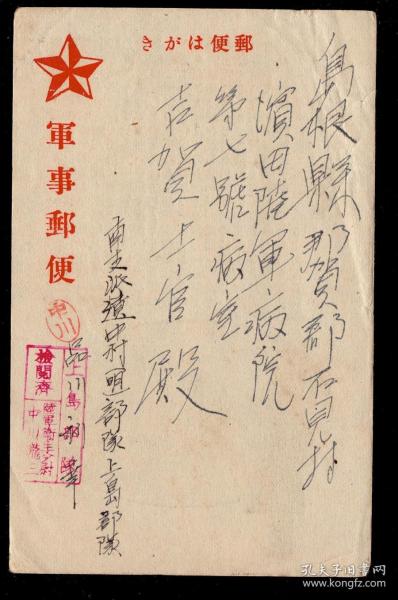 きがは便郵
軍事郵便
島根縣那賀郡石見村
濱田陸軍病院
第七號病室
吉賀士官殿
南支派遣中村明部隊上島部隊
中川
上島部隊
檢閲濟
孔夫子旧书网